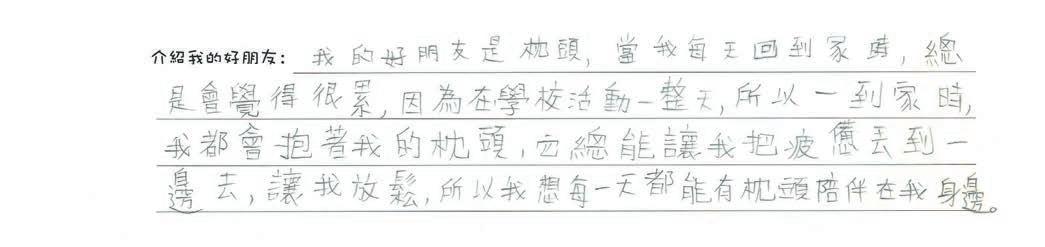 介紹我的好朋友：我的好朋友是枕頭，當我每天回到家時，總
是會覺得很累，因為在學校活動一整天，所以一到家時，
我都會抱著我的枕頭，它總能讓我把疲憊丟到一
邊去，讓我放鬆，所以我想每一天都能有枕頭陪伴在我身邊。